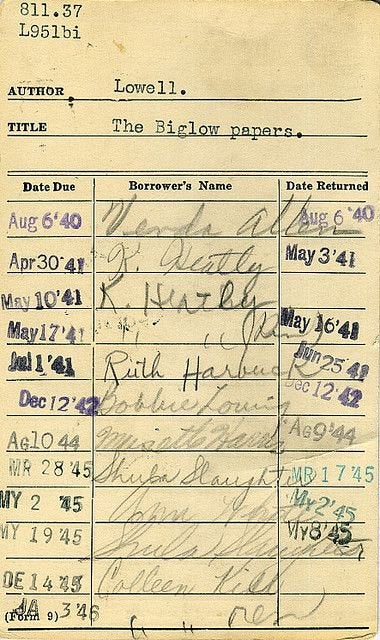 811.37
L951bi
AUTHOR Lowell.
TITLE The Biglow papers.
Date Due Borrower's Name Date Returned
Aug 6'40 Aug 6 '40
Apr 30 '41 K. Heatly May 3 '41
May 10'41 K. Heatley
May 17'41 " " (Ren) May 16'41
Jul 1 '41 Ruth Harbuck Jun 25 '41
Dec 12 '42 Bobbie Loving Dec 12 '42
Ag 10 44 Ag 9 '44
MR 28 '45 Shulba Slaughter MR 17 '45
MY 2 '45 My 2 '45
MY 19 '45 Slaughter My 8 '45
DE 14 '45 Colleen Kidd
JA 3 '46 " " ren
(Form 9)